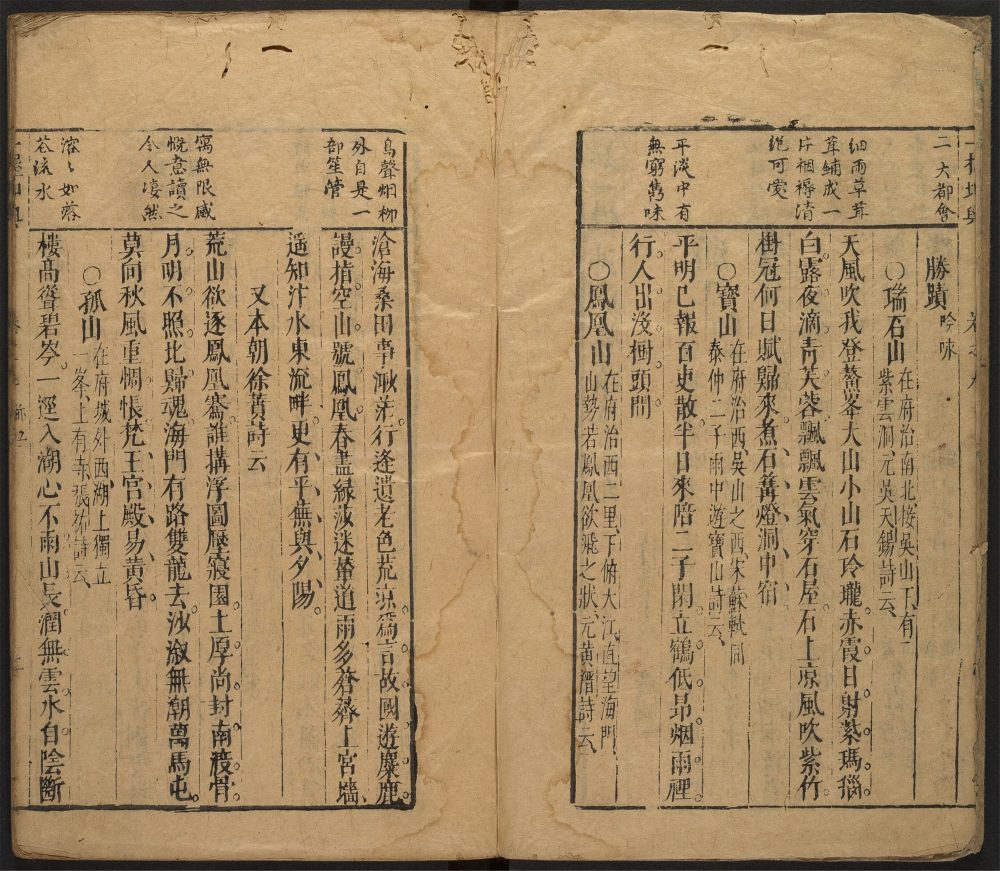 二大都會
細雨草茸
茸鋪成一
片裀褥清
絶可愛
平淡中有
無窮雋味
勝蹟吟咏
○瑞石山在府治南北接吳山下有
紫雲洞元吳天錫詩云
天風吹我登鰲峯大山小山石玲瓏赤霞日射紫瑪瑙
白露夜滴青芙蓉飄飄雲氣穿石屋石上凉風吹紫竹
掛冠何日賦歸來煮石篝燈洞中宿
○寳山在府治西吳山之西宋蘇軾同
泰仲二子雨中遊寳山詩云
平明已報百吏散半日來陪二子閑立鶴低昻烟雨裡
行人出没樹頭間
○鳳凰山在府治西二里下俯大江直望海門
山勢若鳳凰欲飛之狀元黄溍詩云
鳥聲烟柳
外自是一
部笙簧
寫無限感
慨意讀之
令人凄然
溶溶如落
花流水
滄海桑田事渺茫行逢遺老色荒凉爲言故國遊麋鹿
謾指空山號鳳凰春盡緑莎迷輦道雨多蒼薺上宫墻
遥知汴水東流畔更有平蕪與夕陽
又本朝徐賁詩云
荒山欲逐鳳凰騫誰搆浮圖壓寢園土厚尚封南渡骨
月明不照北歸魂海門有路雙龍去沙溆無潮萬馬屯
莫向秋風重惆悵梵王宫殿易黄昏
○孤山在府城外西湖上獨立
一峯上有寺張祐詩云
樓髙聳碧岑一逕入湖心不雨山長潤無雲水自陰斷